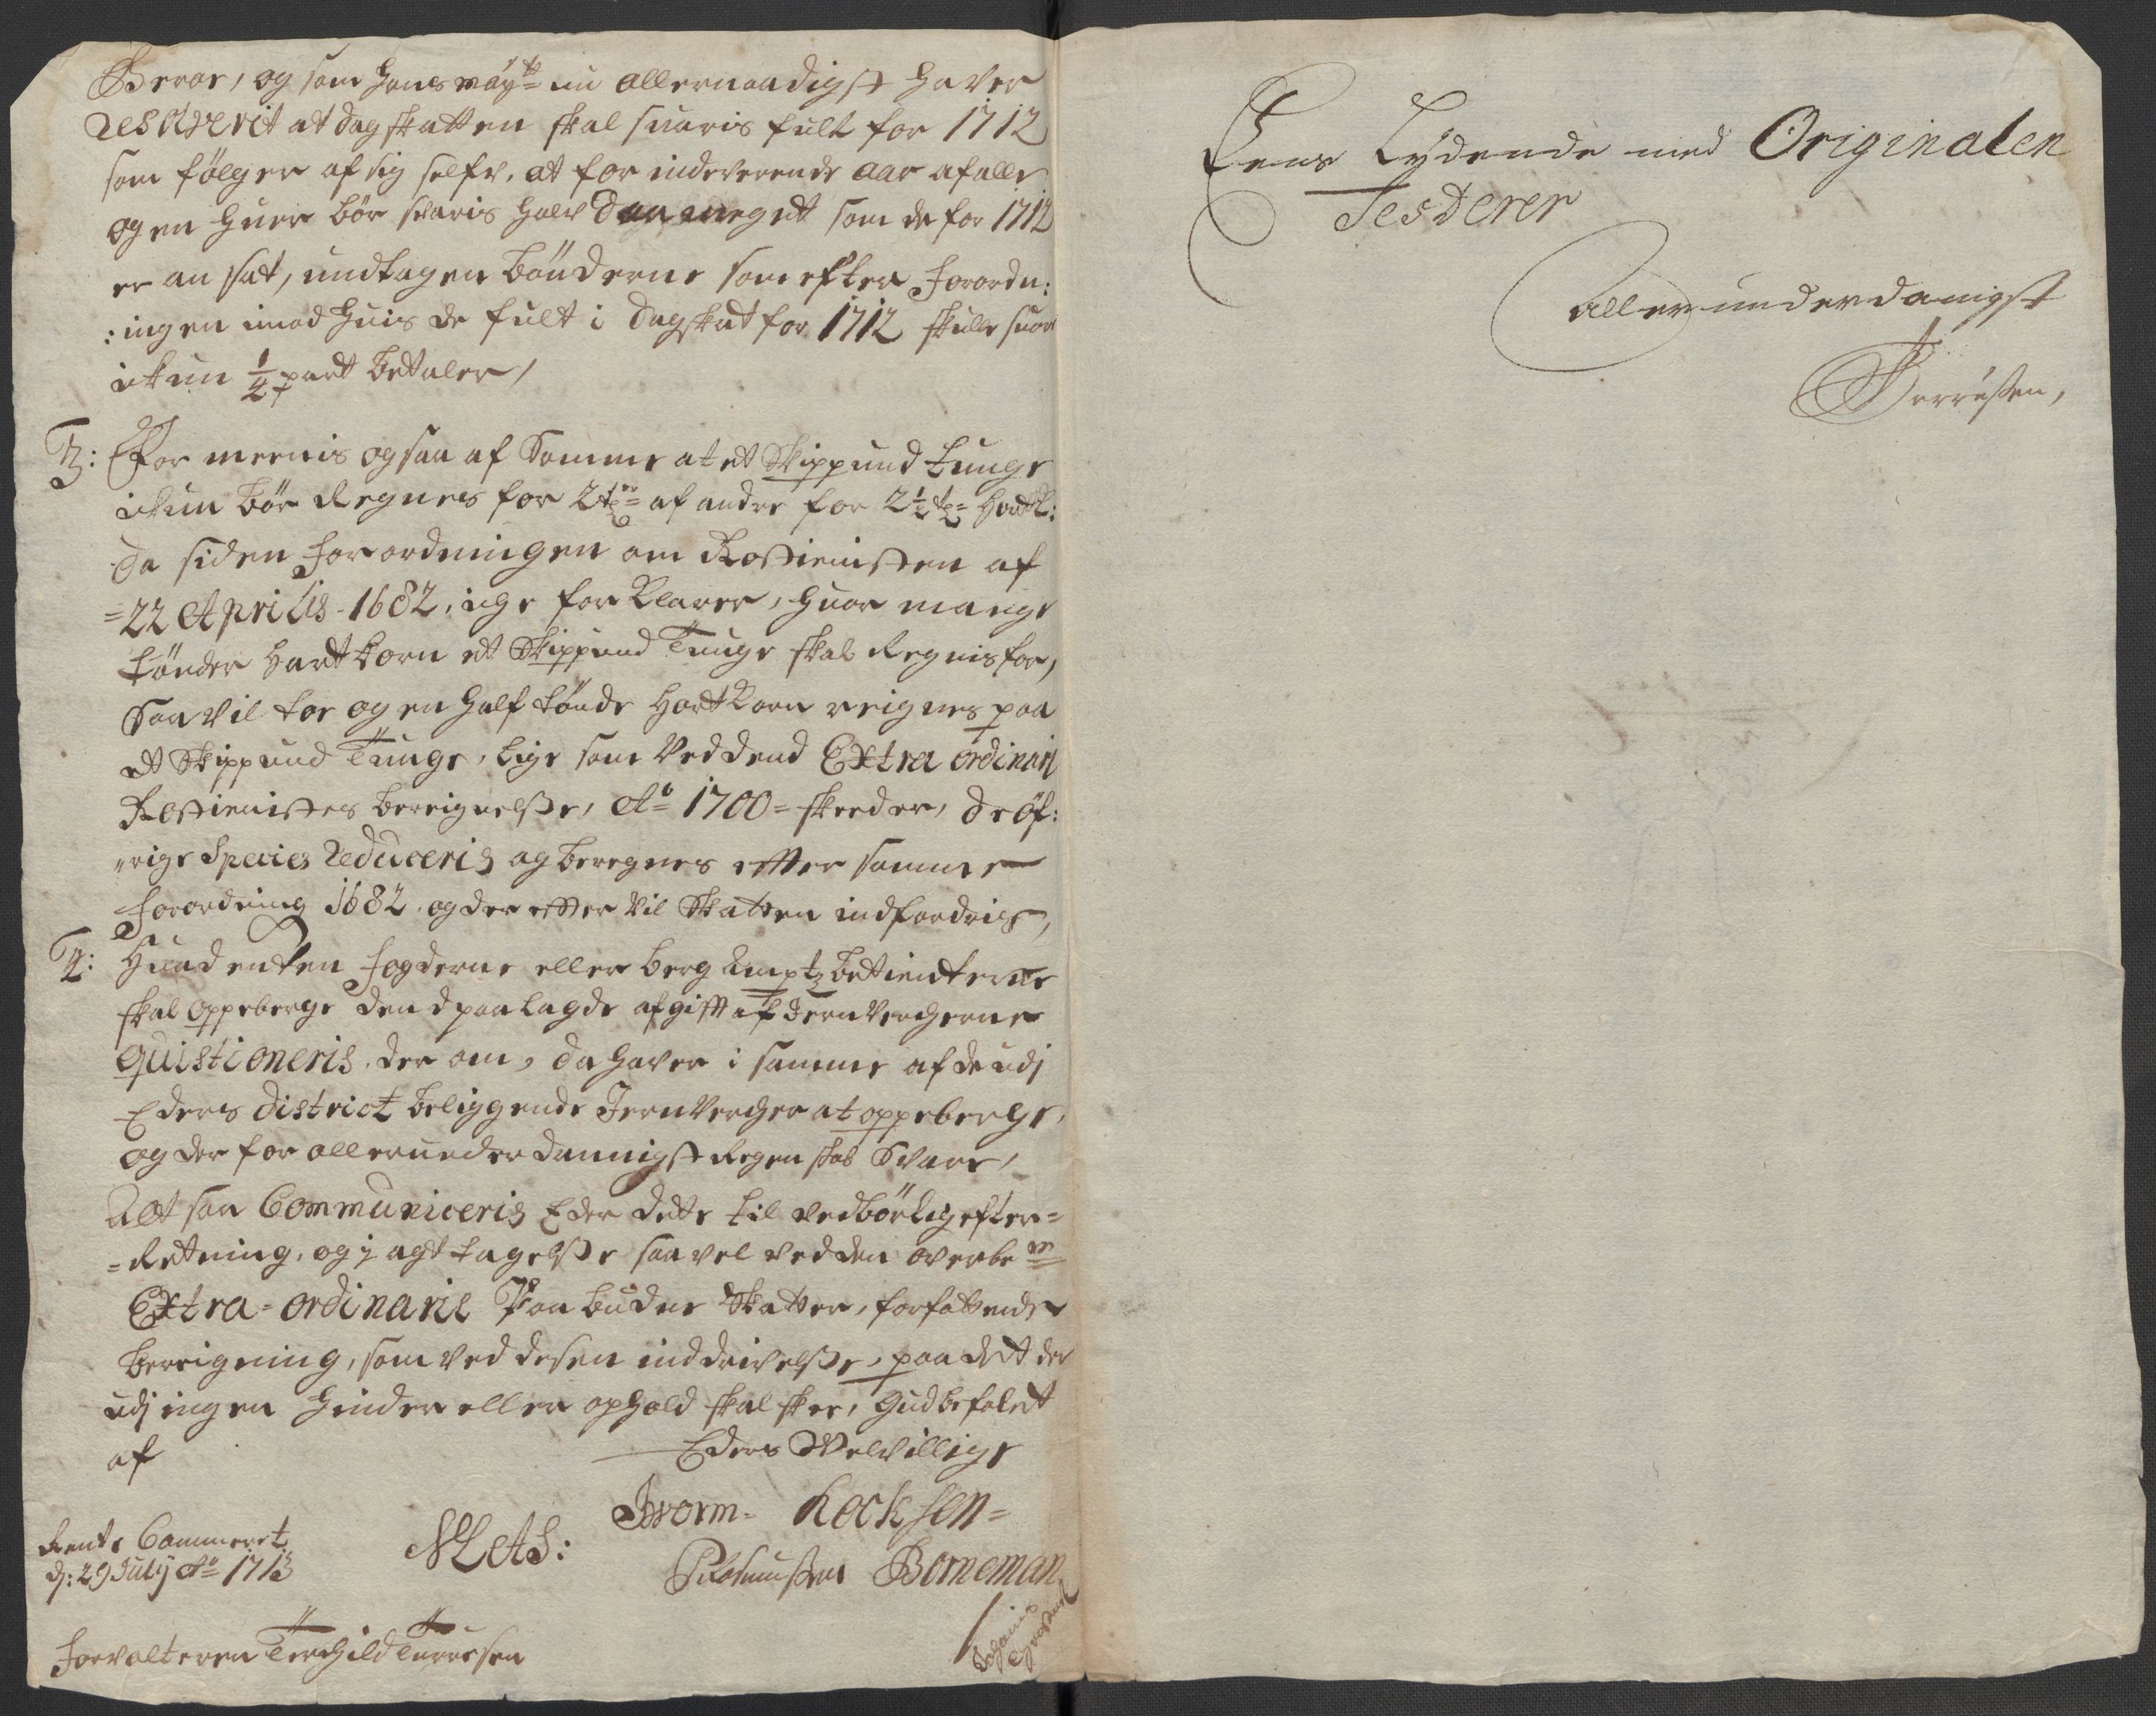 Beroe, og som hans Mayᵗˢ nu allernaadigst haver
resolverit at dagskatten skal suaris fult for 1712
som følger af sig selfv, at for indeverende aar af alle
og en huer bør svaris halv saa meget som de for 1712
er an sat, undtagen bønderne som efter forordn:
:ingen imod huis de fult i dagskat for 1712 skulle suare
ickun ¼ part betaler,
3: Efor meenis ogsaa af Somme at et Skippund tunge
ickun bør Regnes for 2 tr af andre for 2½ tr Hartk:
da siden forordningen om Rostieinisten af
=22 Aprilis 1682, iche forklarer, huor mange
tønder hartkorn et Skippund Tunge skal Regnis for,
saa vil toe og en half tønde Hartkorn reignes paa
et Skippund Tunge, lige som ved dend Extra ordinari
Rostienistes bereignelsse, Aº 1700 = skeeder, de öf:
"rige Species reduceris og beregnes efter samme
forordning 1682 og der efter vil Skatten indfordris,
4: Huad enten fogderne eller berg Amptz betienterne
skal oppeberge dend paalagde afgifft af Jernvercherne
quistioneris der om, da haver i samme af de udj
Eders district beliggende Jernvercher at oppeberge,
og der for allerunderdannigst Regenskab Svare,
Alt saa Communiceris Eder dette til vedbørlig efter=
=Retning, og j agt tagelsse saavel ved den overbemᵗᵉ
Extra=ordinarie Paabudne Skatter, forfattende
bereigning, som ved desen inddrivelsse, paa det der
udj ingen hinder eller ophold skal skee, Gud befalet
af
Eders Velvillige
Jworm= Kocksen=
Rente Cammeret
d: 29 July Aº 1713
PRasmussen Borneman
Forvalteren Terchild Turresen
Eens Lydende med Originalen
Testerer
allerunderdanigst